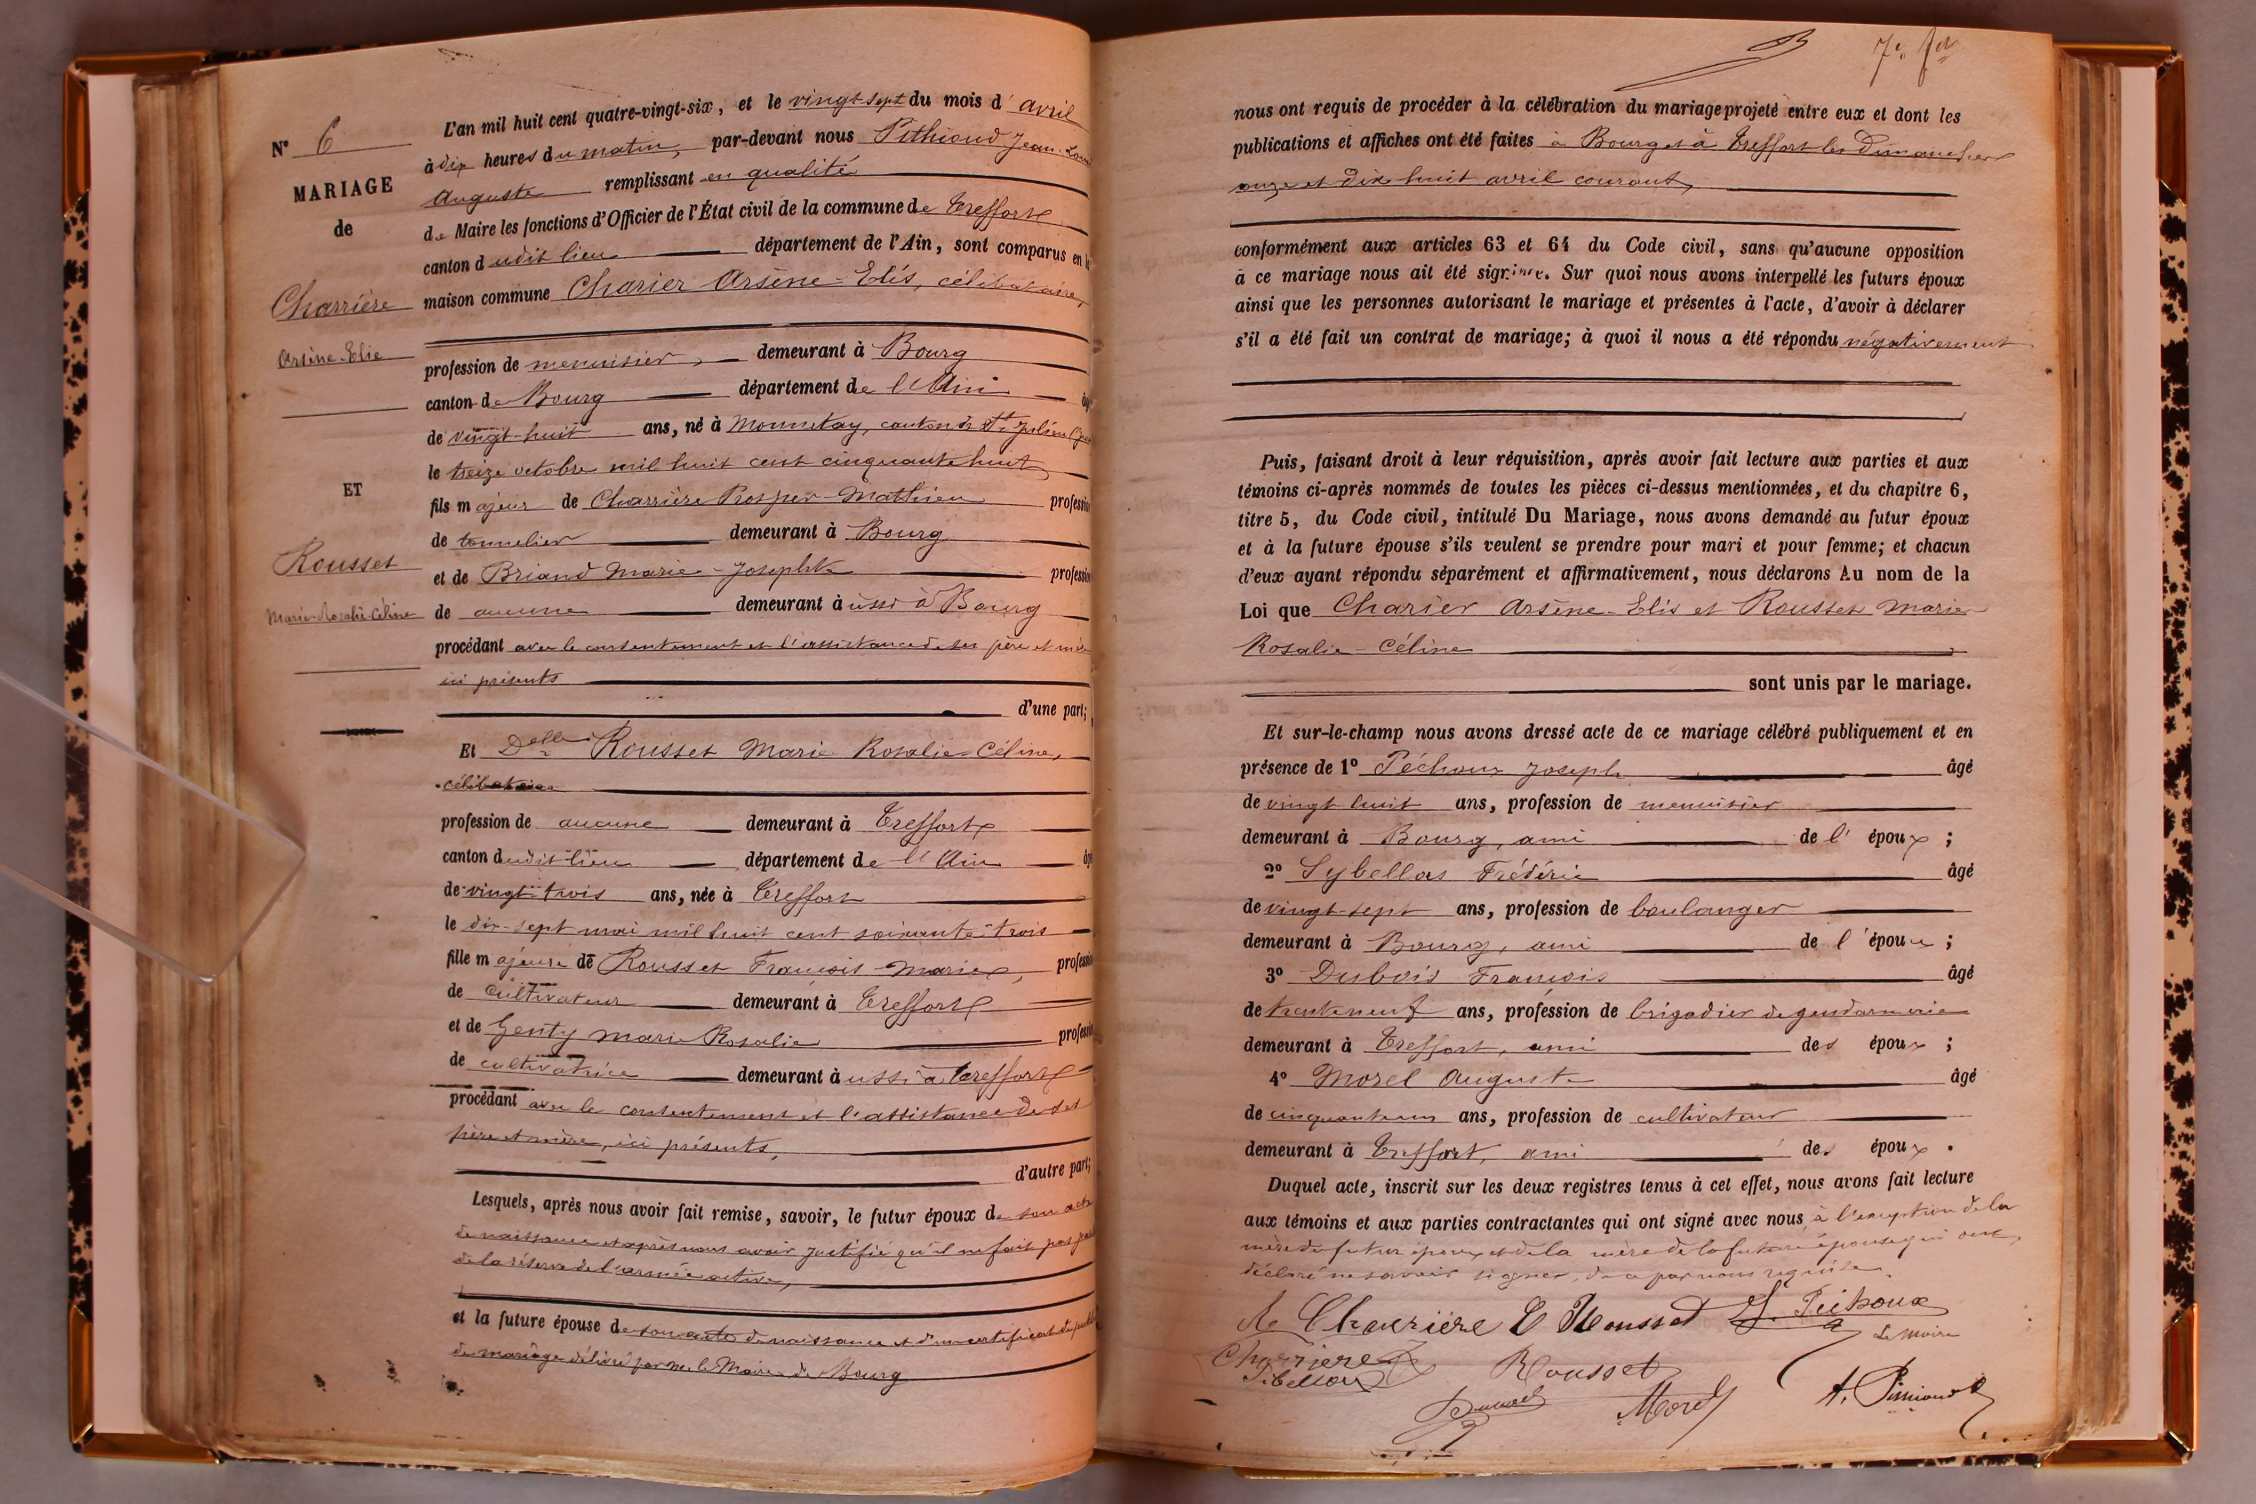 N° 6
MARIAGE
de
Charrière
Arsène-Elie
ET
Rousset
Marie-Rosalie-Céline
L'an mil huit cent quatre-vingt-six, et le vingt sept du mois d'avril
à dix heures du matin, par-devant nous Pithioud Jean-Louis
Auguste remplissant en qualité
de Maire les fonctions d'Officier de l'État civil de la commune de Treffort
canton dudit lieu département de l'Ain, sont comparus en la
maison commune Charier Arsène-Elis, célibataire,
profession de menuisier, demeurant à Bourg
canton de Bourg département de l'Ain âgé
de vingt-huit ans, né à Monnetay, canton de St Julien (Jura
le treize octobre mil huit cent cinquante huit
fils majeur de Charrière Prosper-Mathieu profession
de tonnelier demeurant à Bourg
et de Briand Marie-Josephte profession
de aucune demeurant aussi à Bourg
procédant avec le consentement et l'assistance de ses père et mère
ici présents
d'une part;
Et Delle Rousset Marie Rosalie-Céline,
célibataire
profession de aucune demeurant à Treffort
canton dudit lieu département de l'Ain âgée
de vingt-trois ans, née à Treffort
le dix-sept mai mil huit cent soixante-trois
fille majeure de Rousset François-Marie, profession
de cultivateur demeurant à Treffort
et de Genty Marie Rosalie profession
de cultivatrice demeurant aussi à Treffort
procédant avec le consentement et l'assistance de ses
père et mère, ici présents,
d'autre part;
Lesquels, après nous avoir fait remise, savoir, le futur époux de son acte
de naissance et après nous avoir justifié qu'il ne fait pas partie
de la réserve de l'armée active,
et la future épouse de son acte de naissance et d'un certificat de publ
de mariage délivré par Mr le Maire de Bourg
7e fet
nous ont requis de procéder à la célébration du mariage projeté entre eux et dont les
publications et affiches ont été faites à Bourg et à Treffort les dimanches
onze et dix huit avril courant,
conformément aux articles 63 et 64 du Code civil, sans qu'aucune opposition
à ce mariage nous ait été signifiée. Sur quoi nous avons interpellé les futurs époux
ainsi que les personnes autorisant le mariage et présentes à l'acte, d'avoir à déclarer
s'il a été fait un contrat de mariage; à quoi il nous a été répondu négativement
Puis, faisant droit à leur réquisition, après avoir fait lecture aux parties et aux
témoins ci-après nommés de toutes les pièces ci-dessus mentionnées, et du chapitre 6,
titre 5, du Code civil, intitulé Du Mariage, nous avons demandé au futur époux
et à la future épouse s'ils veulent se prendre pour mari et pour femme; et chacun
d'eux ayant répondu séparément et affirmativement, nous déclarons Au nom de la
Loi que Charier Arsène-Elis et Rousset Marie-
Rosalie-Céline
sont unis par le mariage.
Et sur-le-champ nous avons dressé acte de ce mariage célébré publiquement et en
présence de 1° Péchoux Joseph âgé
de vingt huit ans, profession de menuisier
demeurant à Bourg, ami de l'époux;
2° Sybellas Frédéric âgé
de vingt-sept ans, profession de boulanger
demeurant à Bourg, ami de l'époux;
3° Dubois François âgé
de trente neuf ans, profession de brigadier de gendarmerie
demeurant à Treffort, ami des époux;
4° Morel Auguste âgé
de cinquante un ans, profession de cultivateur
demeurant à Treffort, ami des époux.
Duquel acte, inscrit sur les deux registres tenus à cet effet, nous avons fait lecture
aux témoins et aux parties contractantes qui ont signé avec nous, à l'exception de la
mère du futur époux et de la mère de la future épouse qui ont
déclaré ne savoir signer, de ce par nous requises.
Ae Charrière C Rousset J. Péchoux
Le Maire
Charriere Rousset
Sibellas
Morel
A. Pithioud